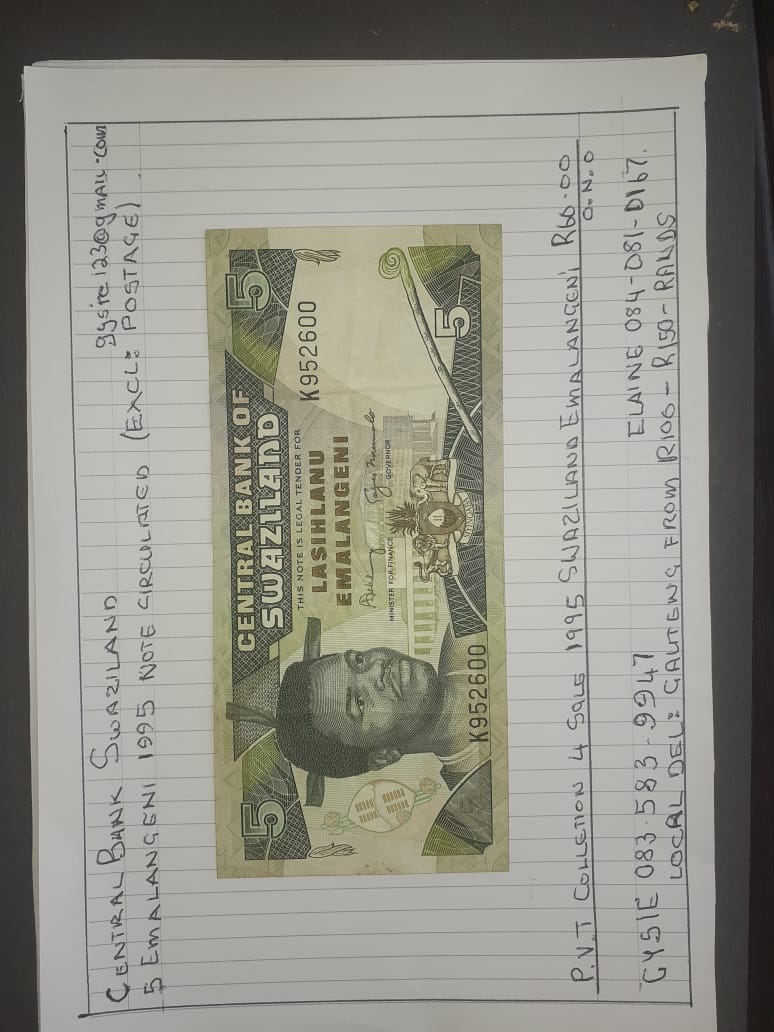 CENTRAL BANK SWAZILAND
gysie123@gmail.com
5 EMALANGENI 1995 NOTE CIRCULATED (EXCL: POSTAGE).
5
CENTRAL BANK OF
SWAZILAND
5
THIS NOTE IS LEGAL TENDER FOR
K952600
LASIHLANU
EMALANGENI
MINISTER FOR FINANCE
GOVERNOR
K952600
5
P.V.T COLLETION 4 SALE 1995 SWAZILAND EMALANGENI R60.00
O.N.O
GYSIE 083.583.9947
ELAINE 084-081-0167.
LOCAL DEL: GAUTENG FROM R100 - R150 - RANDS